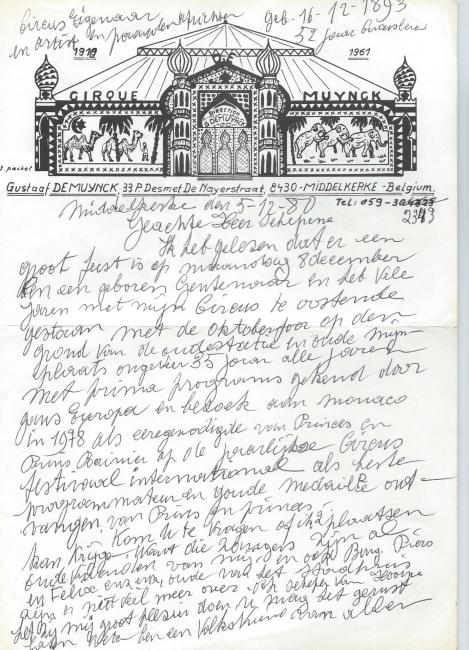 Circus Eigenaar geb. 16-12-1893
en artist en paarden africhter 52 jaar Circusleven
1919 1961
CIRQUE MUYNCK
DIRECTEUR
DEMUYNCK
Gustaaf DEMUYNCK 33 P. Desmet De Nayerstraat, 8430-MIDDELKERKE-Belgium.
Middelkerke den 5-12-80 Tel: 059-30
2343
Geachte Heer Schepene
Ik heb gelezen dat er een
groot feest is op maandag 8 december
Ben een geboren Gentenaar en heb vele
jaren met mijn Circus te oostende
gestaan met de oktoberfoor op den
grond van de oude statie en oude
plaats ongeveer 35 jaar alle jaren
met prima programs gekend door
gans Europa en bezoek aan monaco
in 1978 als eeregenodigde van Princes en
Prins Rainier op de jaarlijkse Circus
festival international als beste
programmateur en goude medaille ont-
vangen van Prins en prinses
Kom U te vragen of ik 2 plaatsen
kan krijgen want die zangers zijn al
oude vrienden van mij en ook Burg. Piers
en Felix enz. enz. oude van het stadhuis
zijn er niet veel meer over
het zij mij groot plezier doen U mag het gerust
ben een Volksvriend van allen